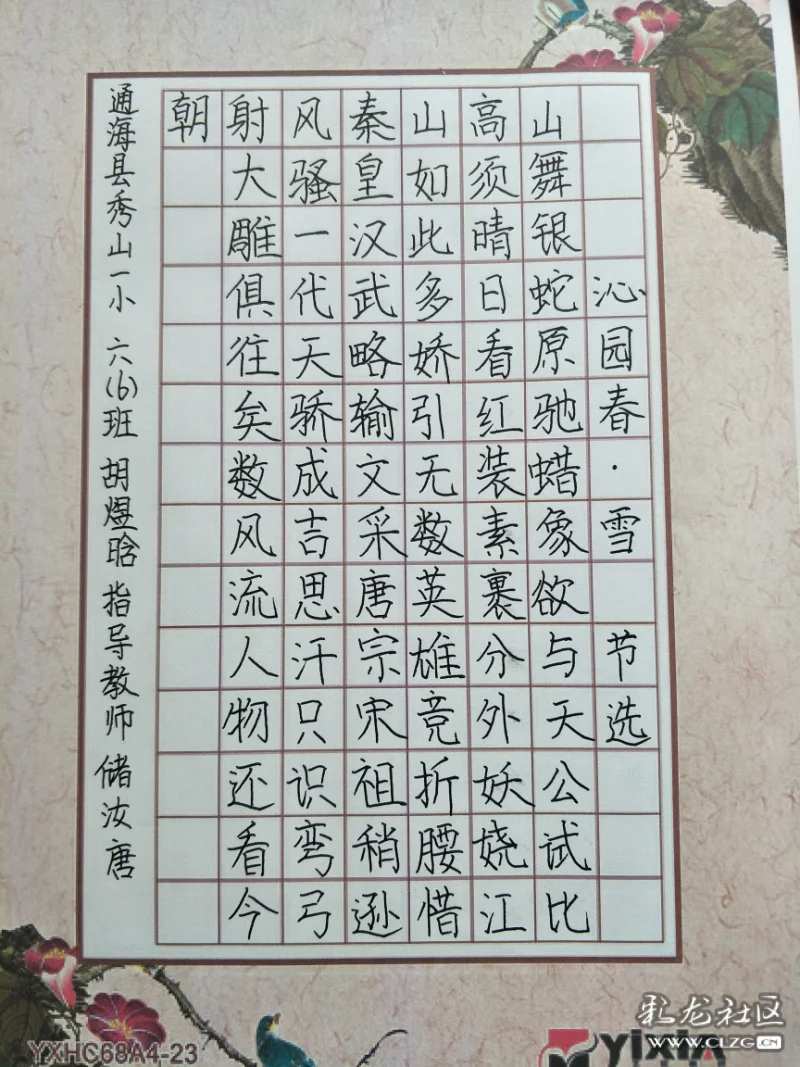 沁园春·雪 节选
山舞银蛇原驰蜡象欲与天公试比
高须晴日看红装素裹分外妖娆江
山如此多娇引无数英雄竞折腰惜
秦皇汉武略输文采唐宗宋祖稍逊
风骚一代天骄成吉思汗只识弯弓
射大雕俱往矣数风流人物还看今
朝
通海县秀山一小 六(6)班 胡煜晗 指导教师 储汝唐
YXHC68A4-23
yixin
彩龙社区
WWW.CLZG.CN